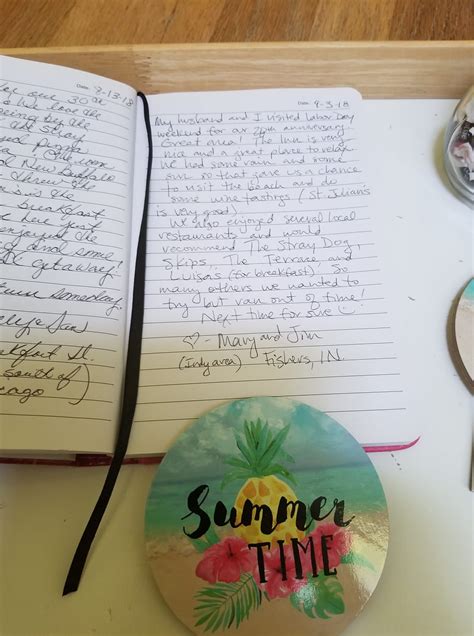 Date: 8-13-18
our 30th
we love the
the stray
and pizza
New Buffalo
threw the
breakfast
enjoyed the
and some
getaway!
someday.
Sue
St.
south of)
Chicago
Date: 9-3-18
My husband and I visited Labor Day
weekend for our anniversary.
Great area! The Inn is very
nice and a great place to relax.
We had some rain and some
sun so that gave us a chance
to visit the beach and do
some wine tastings (St. Julian's
is very good).
We also enjoyed several local
restaurants and would
recommend The Stray Dog,
Skips, The Terrace and
Luisas (for breakfast). So
many others we wanted to
try but ran out of time!
Next time for sure ☺
♡ - Mary and Jim
(Indy area) Fishers, IN.
Summer
TIME